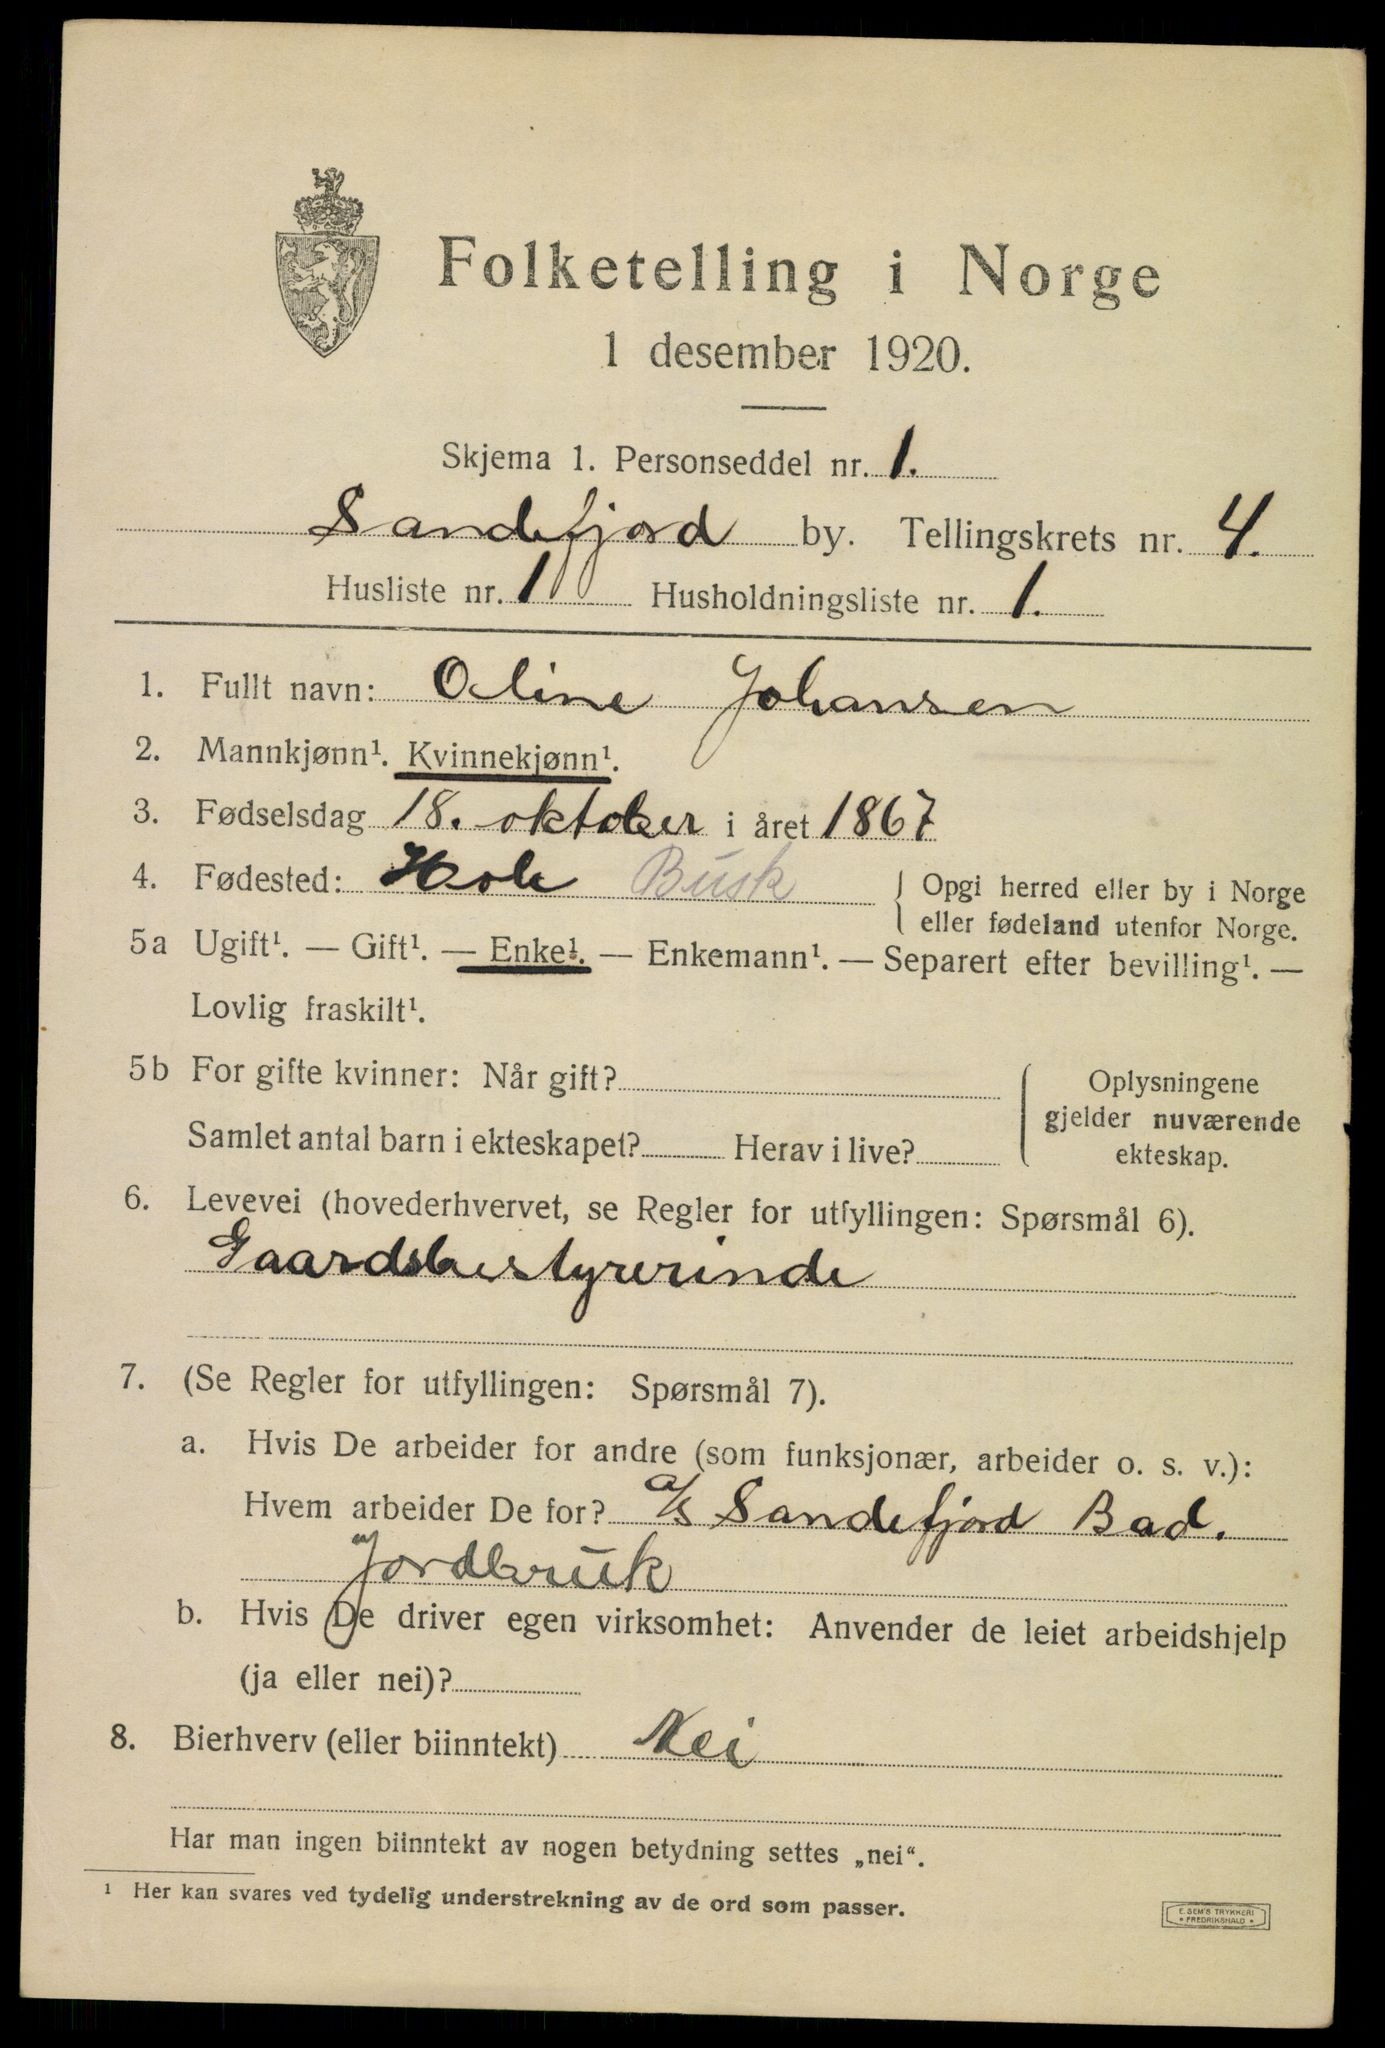 Folketelling i Norge
1 desember 1920.
Skjema 1. Personseddel nr. 1.
Sandefjord by. Tellingskrets nr. 4.
Husliste nr. 1 Husholdningsliste nr. 1.
1. Fullt navn: Oline Johansen
2. Mannkjønn¹. Kvinnekjønn¹.
3. Fødselsdag 18. oktober i året 1867
4. Fødested: Hole Busk { Opgi herred eller by i Norge
eller fødeland utenfor Norge.
5a Ugift¹. — Gift¹. — Enke¹. — Enkemann¹. — Separert efter bevilling¹. —
Lovlig fraskilt¹.
5b For gifte kvinner: Når gift?
Samlet antal barn i ekteskapet? Herav i live?
{ Oplysningene
gjelder nuværende
ekteskap.
6. Levevei (hovederhvervet, se Regler for utfyllingen: Spørsmål 6).
Gaardsbestyrerinde
7. (Se Regler for utfyllingen: Spørsmål 7).
a. Hvis De arbeider for andre (som funksjonær, arbeider o. s. v.):
Hvem arbeider De for? a/s Sandefjord Bad.
Jordbruk
b. Hvis De driver egen virksomhet: Anvender de leiet arbeidshjelp
(ja eller nei)?
8. Bierhverv (eller biinntekt) Nei
Har man ingen biinntekt av nogen betydning settes „nei“.
¹ Her kan svares ved tydelig understrekning av de ord som passer.
E. SEM'S TRYKKERI
• FREDRIKSHALD •